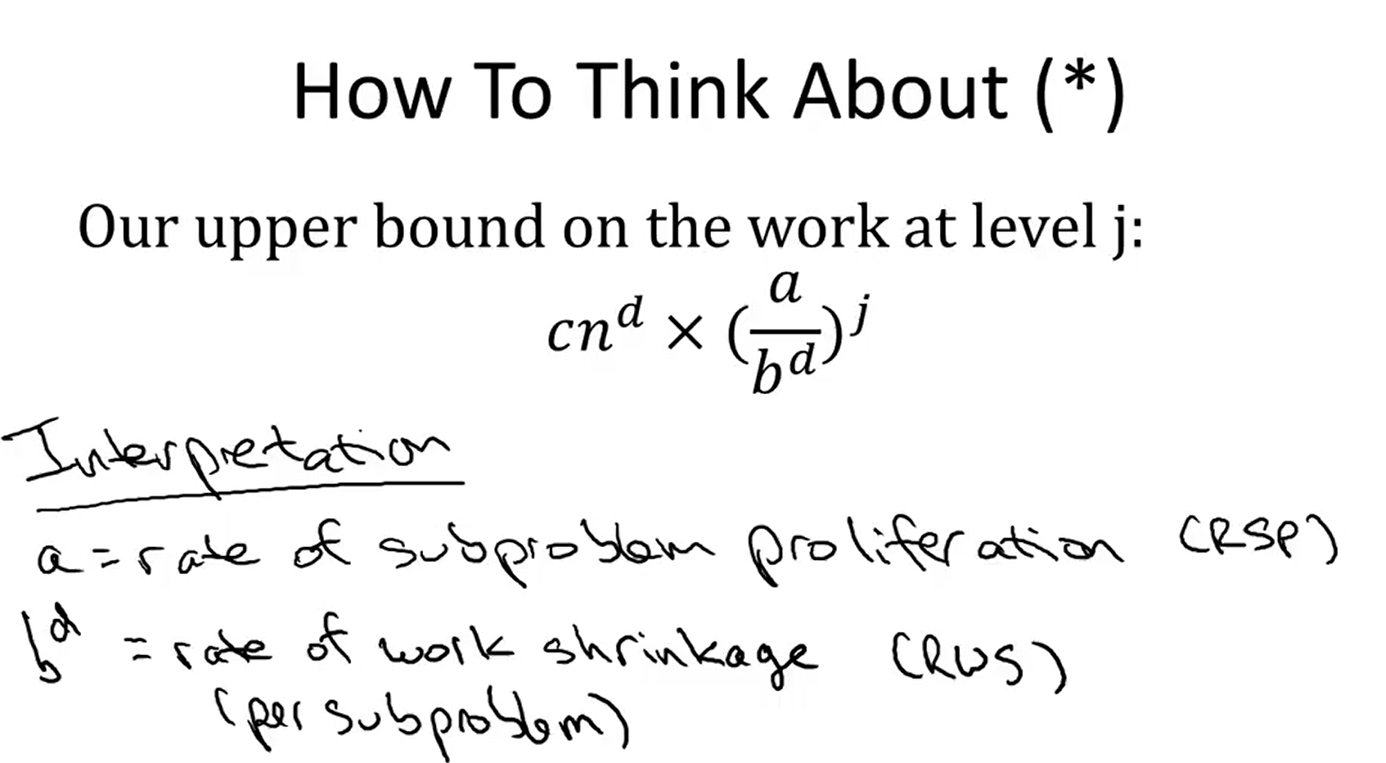 How To Think About (*)
Our upper bound on the work at level j:
cn^d × (a/b^d)^j
Interpretation
a = rate of subproblem proliferation (RSP)
b^d = rate of work shrinkage (RWS)
(per subproblem)